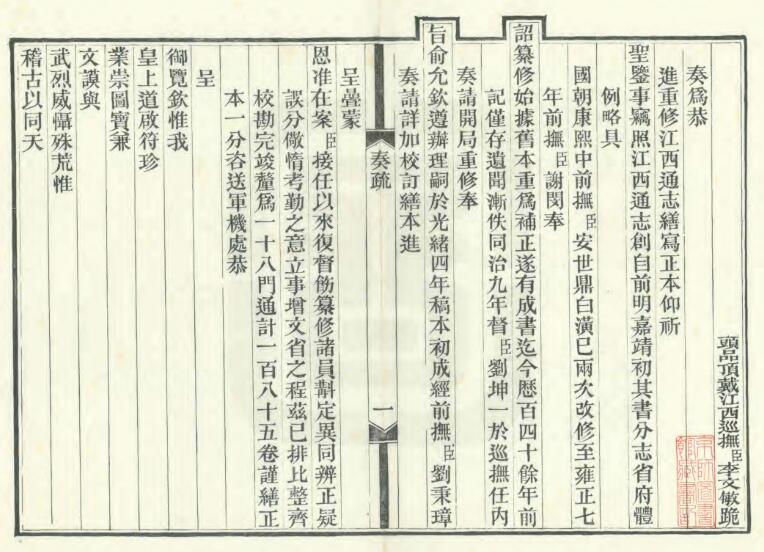 頭品頂戴江西巡撫臣李文敏跪
奏爲恭
進重修江西通志繕寫正本仰祈
聖鑒事竊照江西通志創自前明嘉靖初其書分志省府體
例略具
國朝康熙中前撫臣安世鼎白潢巳兩次改修至雍正七
年前撫臣謝旻奉
詔纂修始據舊本重爲補正遂有成書迄今歷百四十餘年前
記僅存遺聞漸佚同治九年督臣劉坤一於巡撫任內
奏請開局重修奉
旨俞允欽遵辦理嗣於光緒四年稿本初成經前撫臣劉秉璋
奏請詳加校訂繕本進
奏疏
一
呈疊蒙
恩准在案臣接任以來復督飭纂修諸員斠定異同辨正疑
誤分儆惰考勤之意立事增文省之程茲已排比整齊
校勘完竣釐爲一十八門通計一百八十五卷謹繕正
本一分咨送軍機處恭
呈
御覽欽惟我
皇上道啟符珍
業崇圖寶兼
文謨與
武烈威懾殊荒惟
稽古以同天